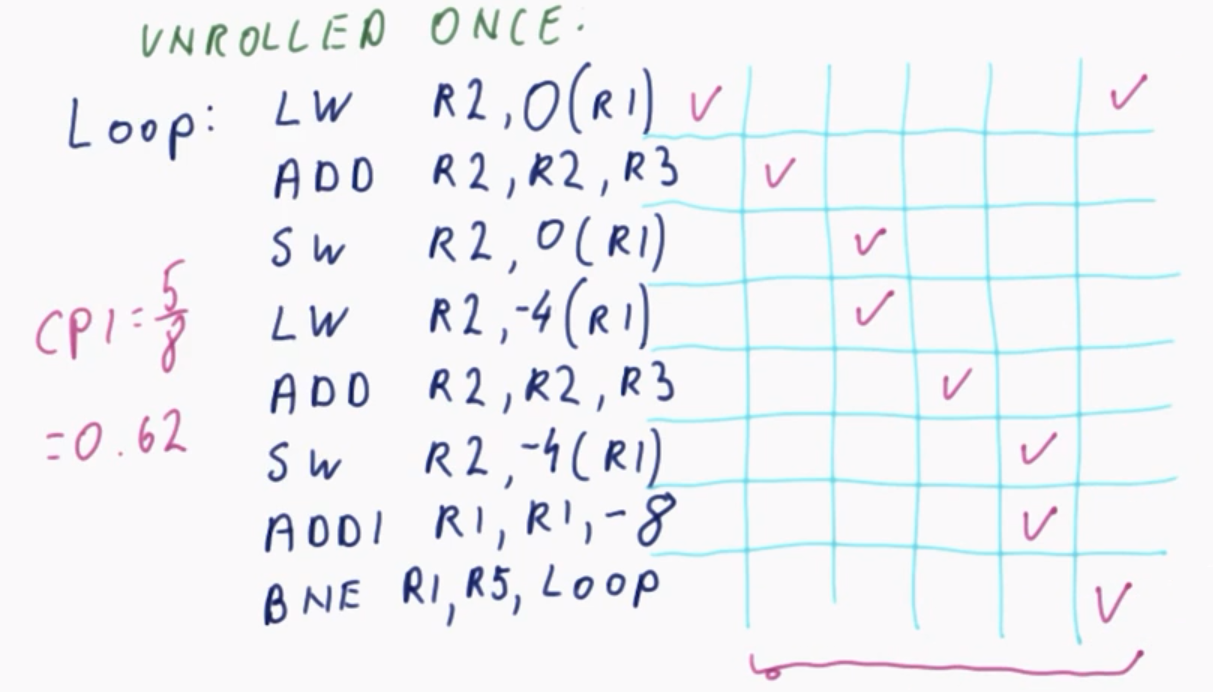 UNROLLED ONCE.
Loop: LW R2, 0(R1) ✓ ✓
ADD R2, R2, R3 ✓
SW R2, 0(R1) ✓
LW R2, -4(R1) ✓
ADD R2, R2, R3 ✓
SW R2, -4(R1) ✓
ADDI R1, R1, -8 ✓
BNE R1, R5, Loop ✓
CPI = 5/8
= 0.62